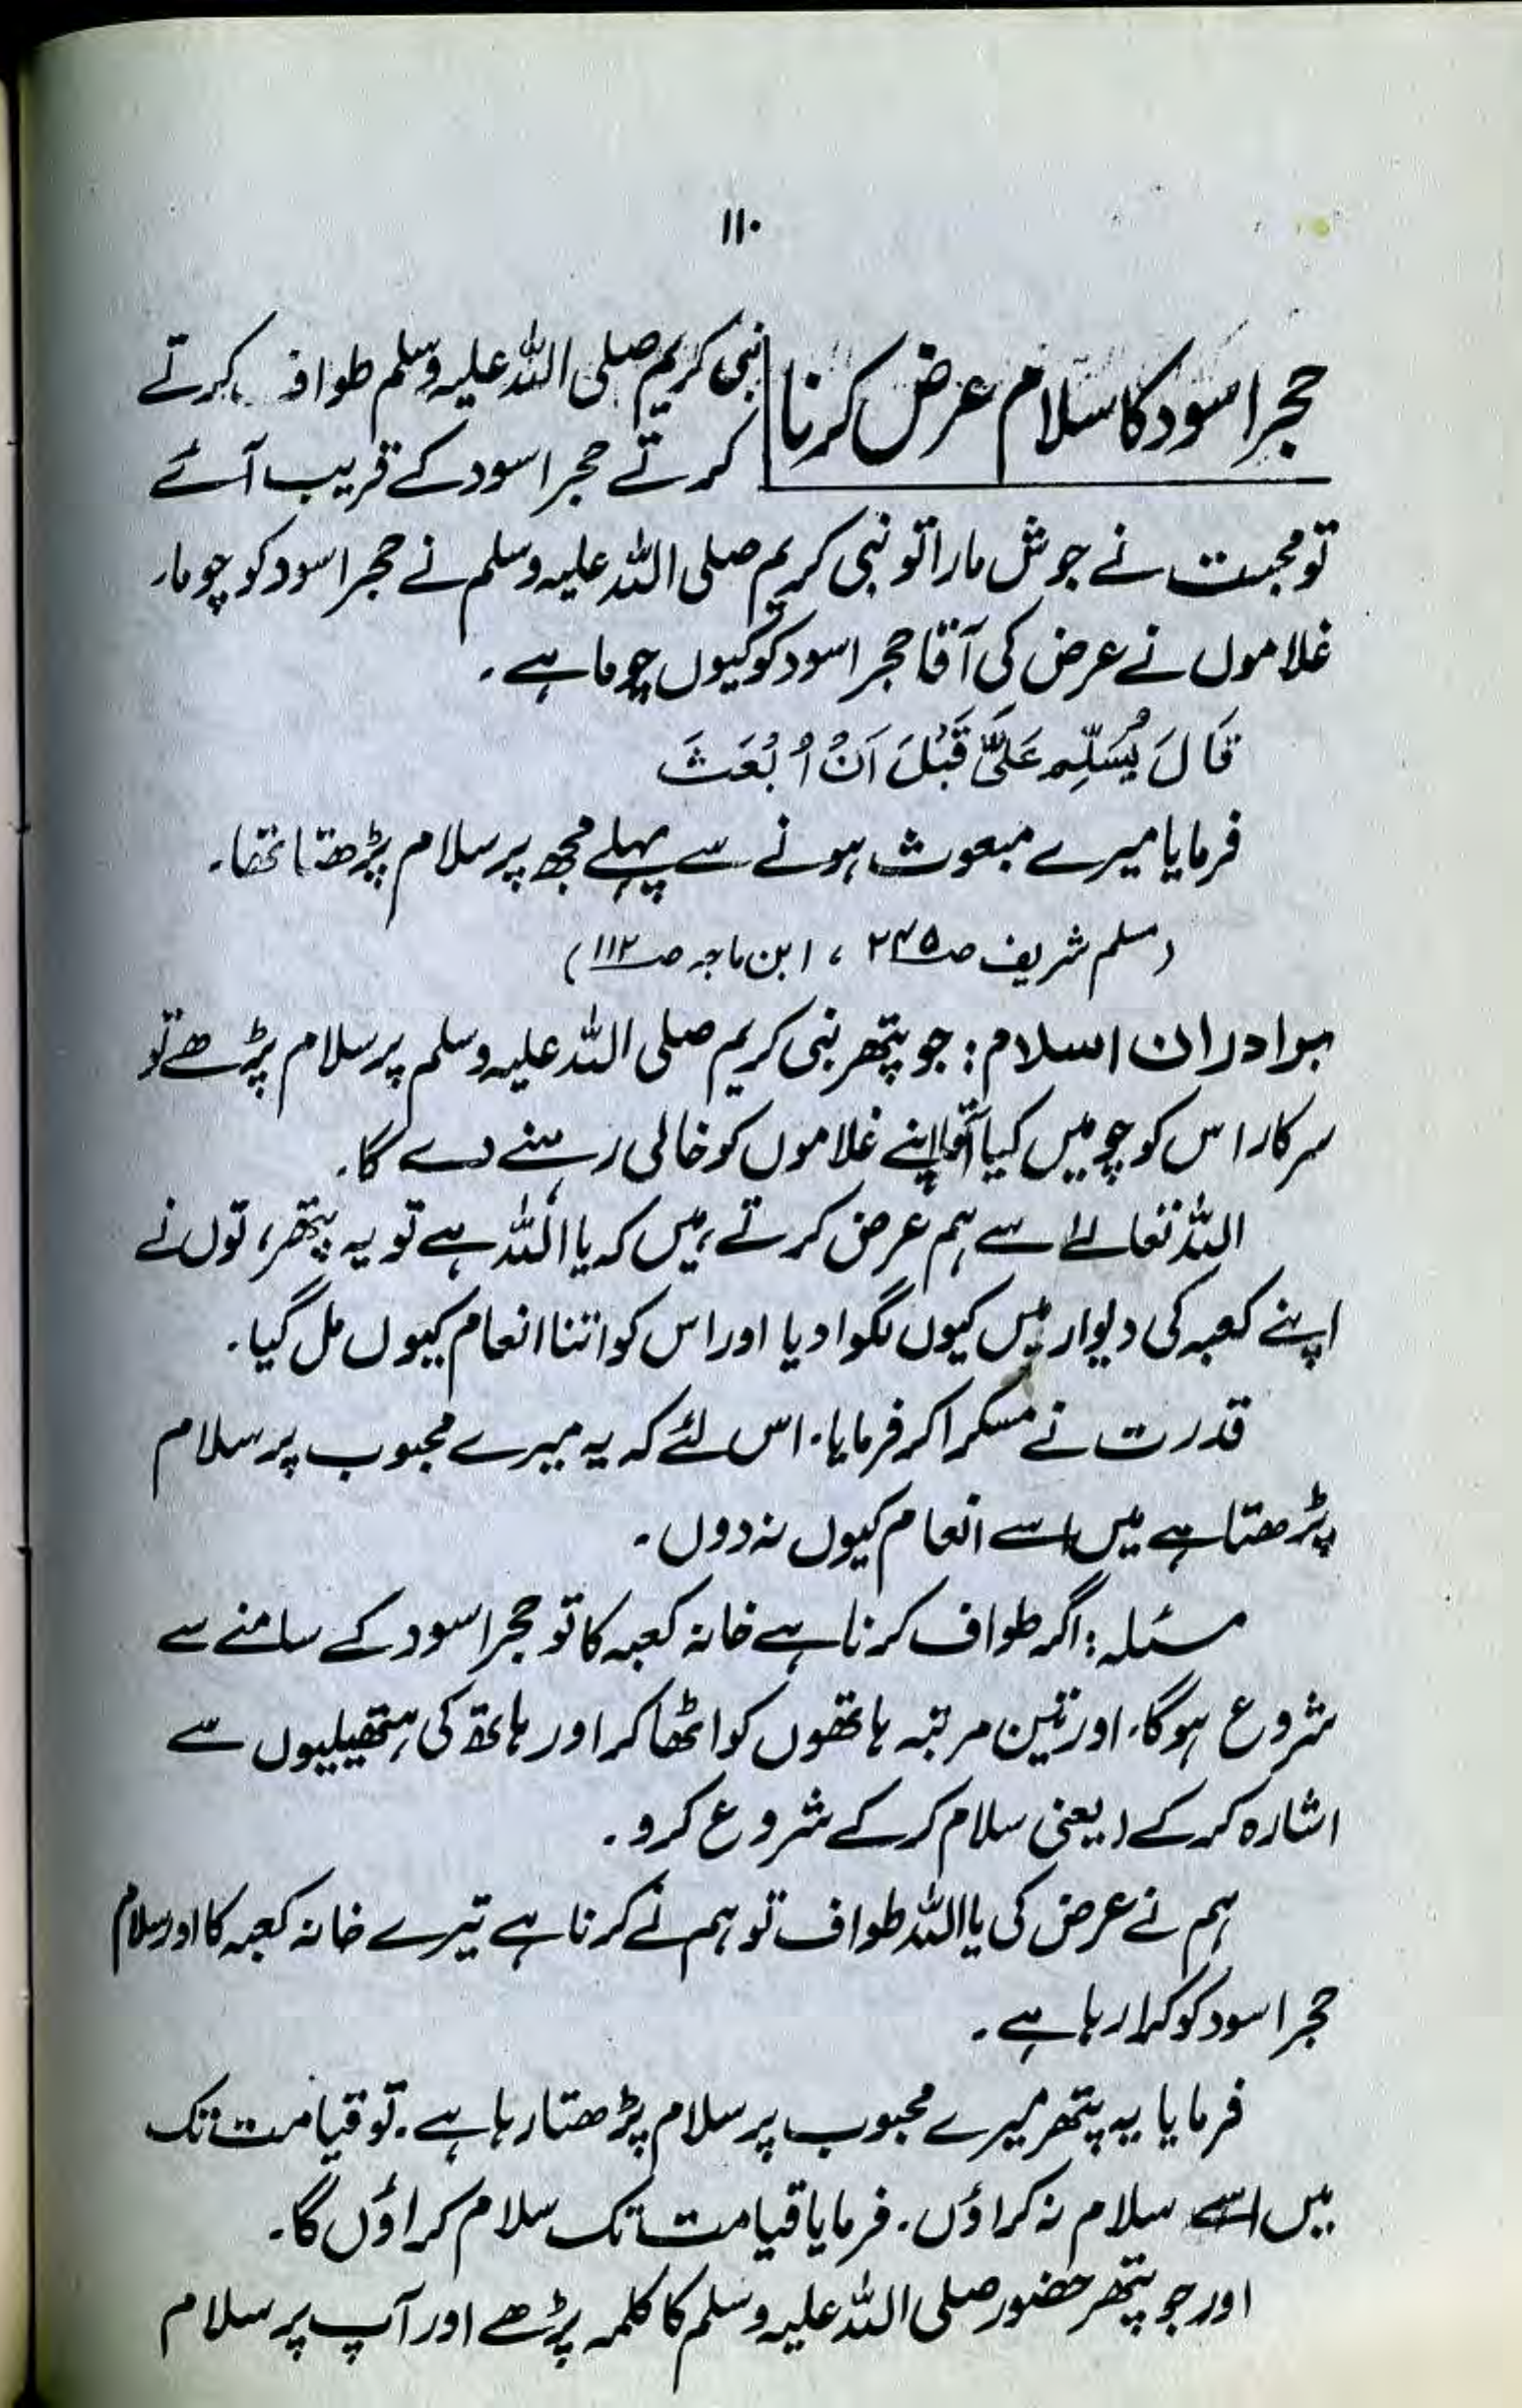 ۱۱۰
حجر اسود کا سلام عرض کرنا
نبی کریم صلی اللہ علیہ وسلم طواف کرتے
کرتے حجر اسود کے قریب آئے
تو محبت نے جوش مارا تو نبی کریم صلی اللہ علیہ وسلم نے حجر اسود کو چوما۔
غلاموں نے عرض کی آقا حجر اسود کو کیوں چوما ہے۔
قَالَ یُسَلِّمِ عَلَیَّ قَبْلَ اَنْ اُبْعَثَ
فرمایا میرے مبعوث ہونے سے پہلے مجھ پر سلام پڑھتا تھا۔
(مسلم شریف صـ۲۴۵ ، ابن ماجہ صـ۱۱۲)
برادران اسلام: جو پتھر نبی کریم صلی اللہ علیہ وسلم پر سلام پڑھے تو
سرکار اس کو چومیں کیا آقا اپنے غلاموں کو خالی رہنے دے گا۔
اللہ تعالےٰ سے ہم عرض کرتے ہیں کہ یا اللہ ہے تو یہ پتھر، توں نے
اپنے کعبہ کی دیوار میں کیوں لگوا دیا اور اس کو اتنا انعام کیوں مل گیا۔
قدرت نے مسکرا کر فرمایا۔ اس لئے کہ یہ میرے محبوب پر سلام
پڑھتا ہے میں اسے انعام کیوں نہ دوں۔
مسئلہ: اگر طواف کرنا ہے خانہ کعبہ کا تو حجر اسود کے سامنے سے
شروع ہوگا۔ اور تین مرتبہ ہاتھوں کو اٹھا کر اور ہاتھ کی ہتھیلیوں سے
اشارہ کر کے (یعنی سلام کر کے شروع کرو۔
ہم نے عرض کی یا اللہ طواف تو ہم نے کرنا ہے تیرے خانہ کعبہ کا اور سلام
حجر اسود کو کرا رہا ہے۔
فرمایا یہ پتھر میرے محبوب پر سلام پڑھتا رہا ہے۔ تو قیامت تک
میں اسے سلام نہ کراؤں۔ فرمایا قیامت تک سلام کراؤں گا۔
اور جو پتھر حضور صلی اللہ علیہ وسلم کا کلمہ پڑھے اور آپ پر سلام